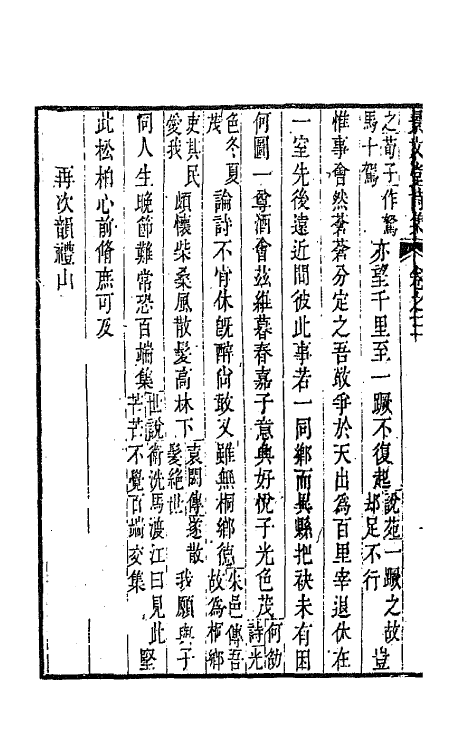 景文堂詩集 卷之二
之荀子作駑
馬十駕
亦望千里至一蹶不復起
說苑一蹶之故
却足不行
豈
惟事會然蒼蒼分定之吾敢爭於天出為百里宰退休在
一室先後遠近間彼此事若一同鄉而異縣把袂未有因
何圖一尊酒會茲維暮春嘉子意與好悅子光色茂
何劭
詩光
色冬夏
茂
論詩不肯休旣醉尚敢又雖無桐鄉德
朱邑傳吾
故為桐鄉
吏其民
愛我
頗懷柴桑風散髮高林下
袁閎傳遂散
髮絕世
我願與子
同人生晚節難常恐百端集
世說衛洗馬渡江曰見此
芒芒不覺百端交集
堅
此松柏心前脩庶可及
再次韻禮山